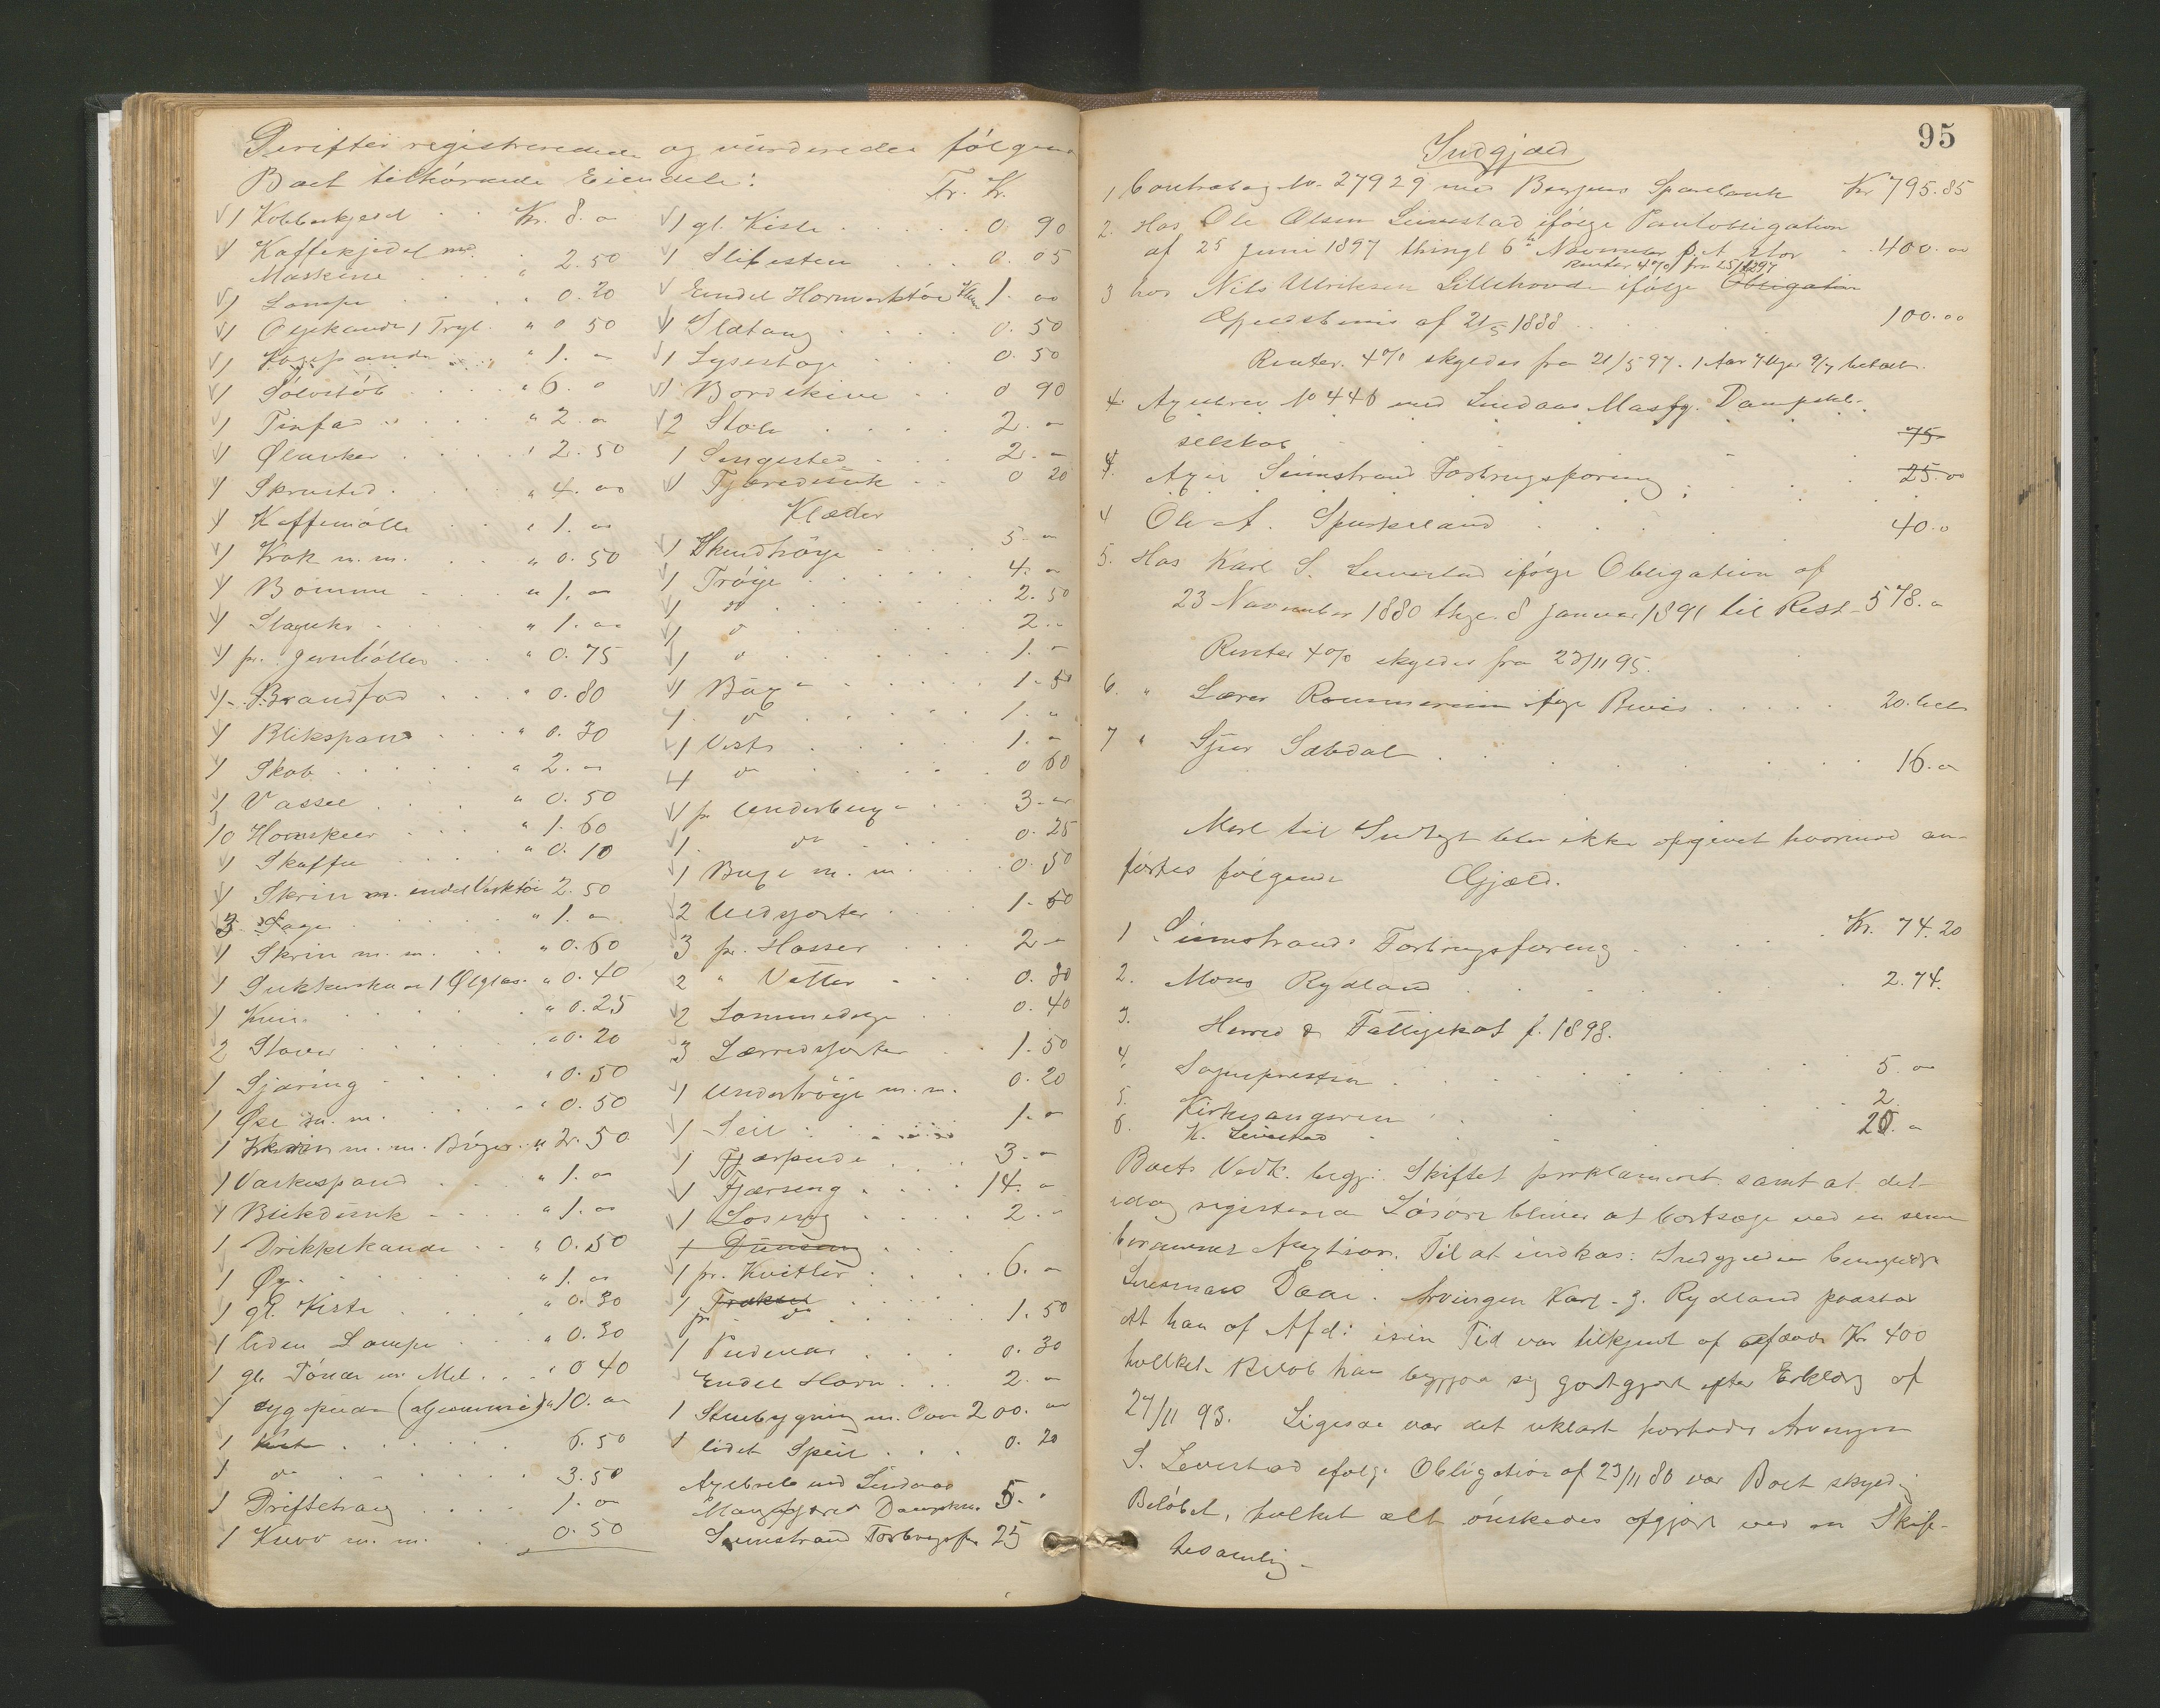 Derefter registreredes og vurderedes følgende
Boet tilhørende Eiendele:
1 Kobberkjedel Kr. 8.00
1 Kaffekjedel m.
Maskine " 2.50
1 Lampe " 0.20
1 Oljekande 1 Trgt. " 0.50
1 Kogepande " 1.00
1 Sølvstøb " 6.0
1 Tinfad " 2.00
1 Ølanker " 2.50
1 Skrusted " 4.00
1 Kaffemølle " 1.00
1 Krok m.m. " 0.50
1 Bomme " 1.00
1 Slaguhr " 1.00
1 pr. " 0.75
1 Brandfad " 0.80
1 Blikspand " 0.30
1 Skab " 2.00
1 Vassel " 0.50
10 Hornskeer " 1.60
1 Skaffe " 0.10
1 Skrin m. endel Værktøi 2.50
3 Sage " 1.00
1 Skrin m.m. " 0.60
1 Sukkerskaal 1 Ølglas " 0.40
1 " 0.25
2 Staver " 0.20
1 Sjæring " 0.50
1 Øse m.m. " 0.50
1 Skrin m.m. Bøger " 2.50
1 Vaskespand " 1.00
1 Blikdunk " 1.00
1 Drikkekande " 0.50
1 Øx " 1.00
1 gl. Kiste " 0.30
1 liden Lampe " 0.30
1 gl. Tønde m. Mel " 0.40
1 10.00
1 Kiste 6.50
1 do 3.50
1 Driftetraug 1.00
1 Kurv m.m. 0.50
Tr. Kr.
1 gl. Kiste 0 90
1 Slibesten 0.05
Endel Hornverktøi 1.00
1 Slåtang 0.50
1 Lysestage 0.50
1 Bordskive 0 90
2 Stole 2.00
1 Sengested 2.00
1 Tjæredunk 0 20
Klæder
1 Skindtrøye 5.00
1 Trøye 4.00
1 do 2.50
1 do 2.00
1 do 1.00
1 Buxe 1.50
1 do 1.00
1 Vest 1.00
1 do 0 60
1 pr Underbuxe 3.00
1 do 0.25
1 Buxe m.m. 0.50
2 Uldsjorter 1.50
3 pr. Hosser 2.00
2 " Votter 0.30
2 0.40
3 Lærredsjorter 1.50
1 Undertrøye m.m. 0.20
1 Seil 1.00
1 Fjærpude 3.00
1 Fjærseng 14.00
1 2.00
1 pr. Kvitler 6.00
1 pr. do 1.50
1 Pudevar 0.30
Endel Horn 2.00
1 Stuebygning m. Ovn 200.00
1 lidet Speil 0.20
Axiebreve med Lindaas
Masfjord Dampsk. 5.00
Seimstrand Forbrugsfor. 25
95
Indgjæld
1 Contrabog No. 27929 med Bergens Sparebank Kr 795.85
2. Hos Ole Olsen Leirestad ifølge Pantobligation
af 25 Juni 1897 thingl 6te November s.A. stor 400.00
Renter 4% fra 25/12 97
3 hos Nils Ulriksen Lillehovde ifølge Obligation
Gjeldsbevis af 21/5 1888 100.00
Renter 4% skyldes fra 21/5 97.
4 Axiebrev No 446 med Lindaas Masfj. Dampsk.
selskab 75
4. Axie Seimstrand Forbrugsforening 25.00
4 Ole A. Spurkeland 40.0
5. Hos Karl S. Leirestad ifølge Obligation af
23 November 1880 thgl. 8 Januar 1891 til Rest 578.00
Renter 4% skyldes fra 23/11 95.
6. " Lærer ifølge Bevis 20.
7 " Sjur Sæbdal 16.00
Mere til Indtegt blev ikke opgivet hvormod an-
førtes følgende Gjæld.
1 Seimstrands Forbrugsforening Kr. 74.20
2. Mons Rydland 2.74.
3. Herred & Fattigskat f. 1898.
4. Sognepresten 5.00
5. Kirkesangeren 2
6. K. Leirestad 20.00
Boets Vedk. begj: Skiftet proklameret samt at det
idag registrerede Løsøre bliver at bortsælge ved en senere
berammet Auktion. Til at indkas: Indgjælden bemyndiges
Lensmand Daae. Arvingen Karl J. Rydland paastod
at han af Afd: i sin Tid var tilkjent Kr 400
hvilket Beløb han begjær sig godtgjort efter Erklæring af
27/11 93. Ligesaa var det uklart hvorvidt Arvingen
S. Leirestad ifølge Obligation af 23/11 80 var Boet skyldig
Beløbet, hvilket alt ønskedes afgjort ved en Skifte-
samling